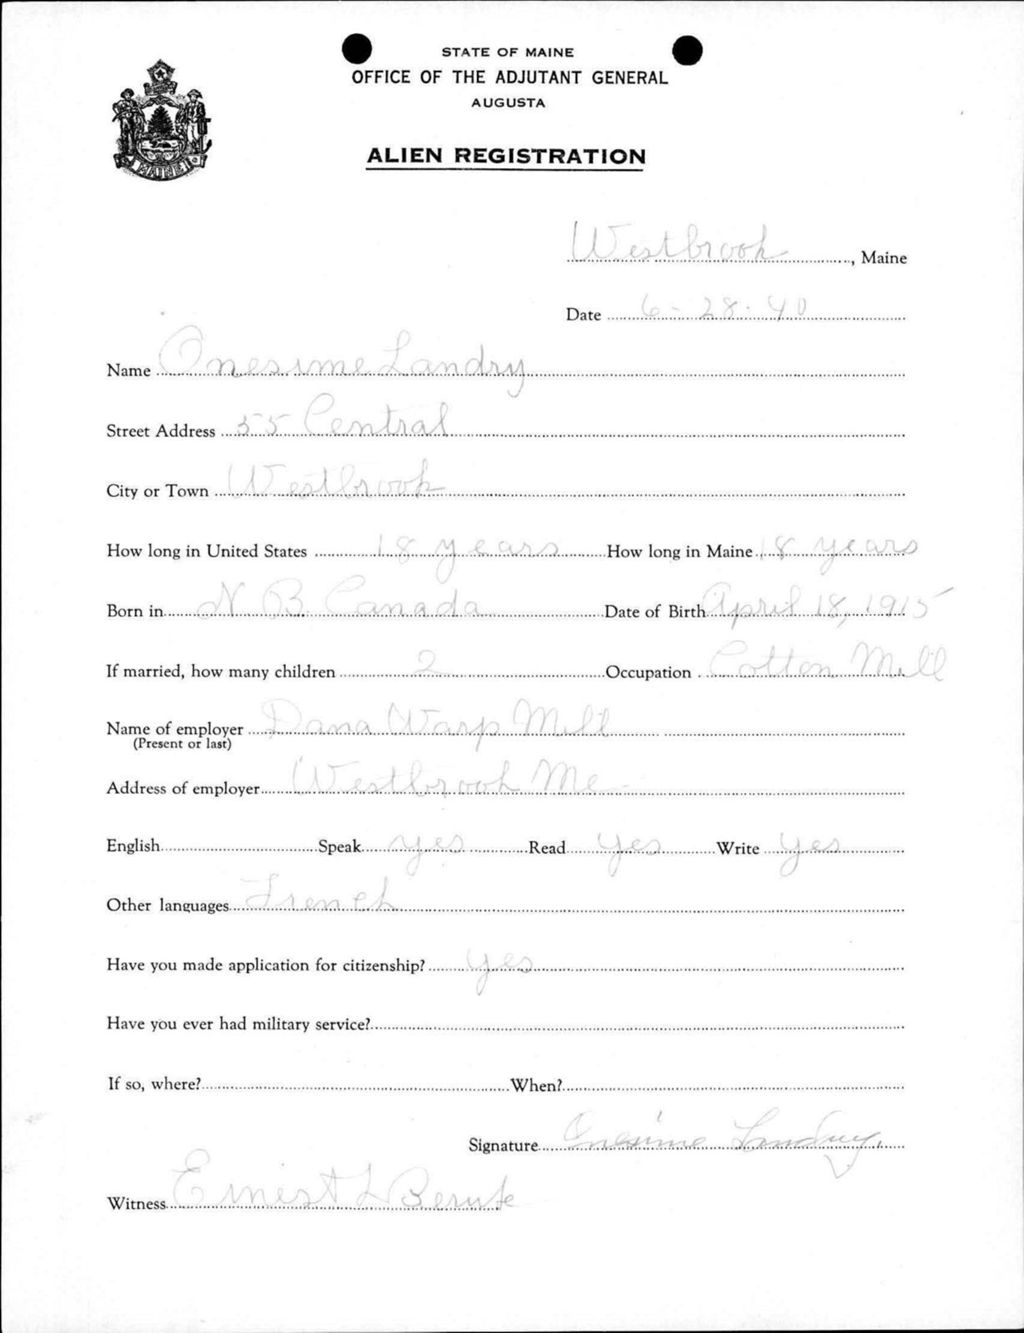 STATE OF MAINE
OFFICE OF THE ADJUTANT GENERAL
AUGUSTA
ALIEN REGISTRATION
MAINE
Westbrook, Maine
Date 6-28-40
Name Onesime Landry
Street Address 55 Central
City or Town Westbrook
How long in United States 18 years How long in Maine 18 years
Born in N B. Canada Date of Birth April 18, 1915
If married, how many children 2 Occupation Cotton Mill
Name of employer Dana Warp Mill
(Present or last)
Address of employer Westbrook Me
English Speak yes Read yes Write yes
Other languages French
Have you made application for citizenship? yes
Have you ever had military service?
If so, where? When?
Signature Onesime Landry
Witness Ernest L